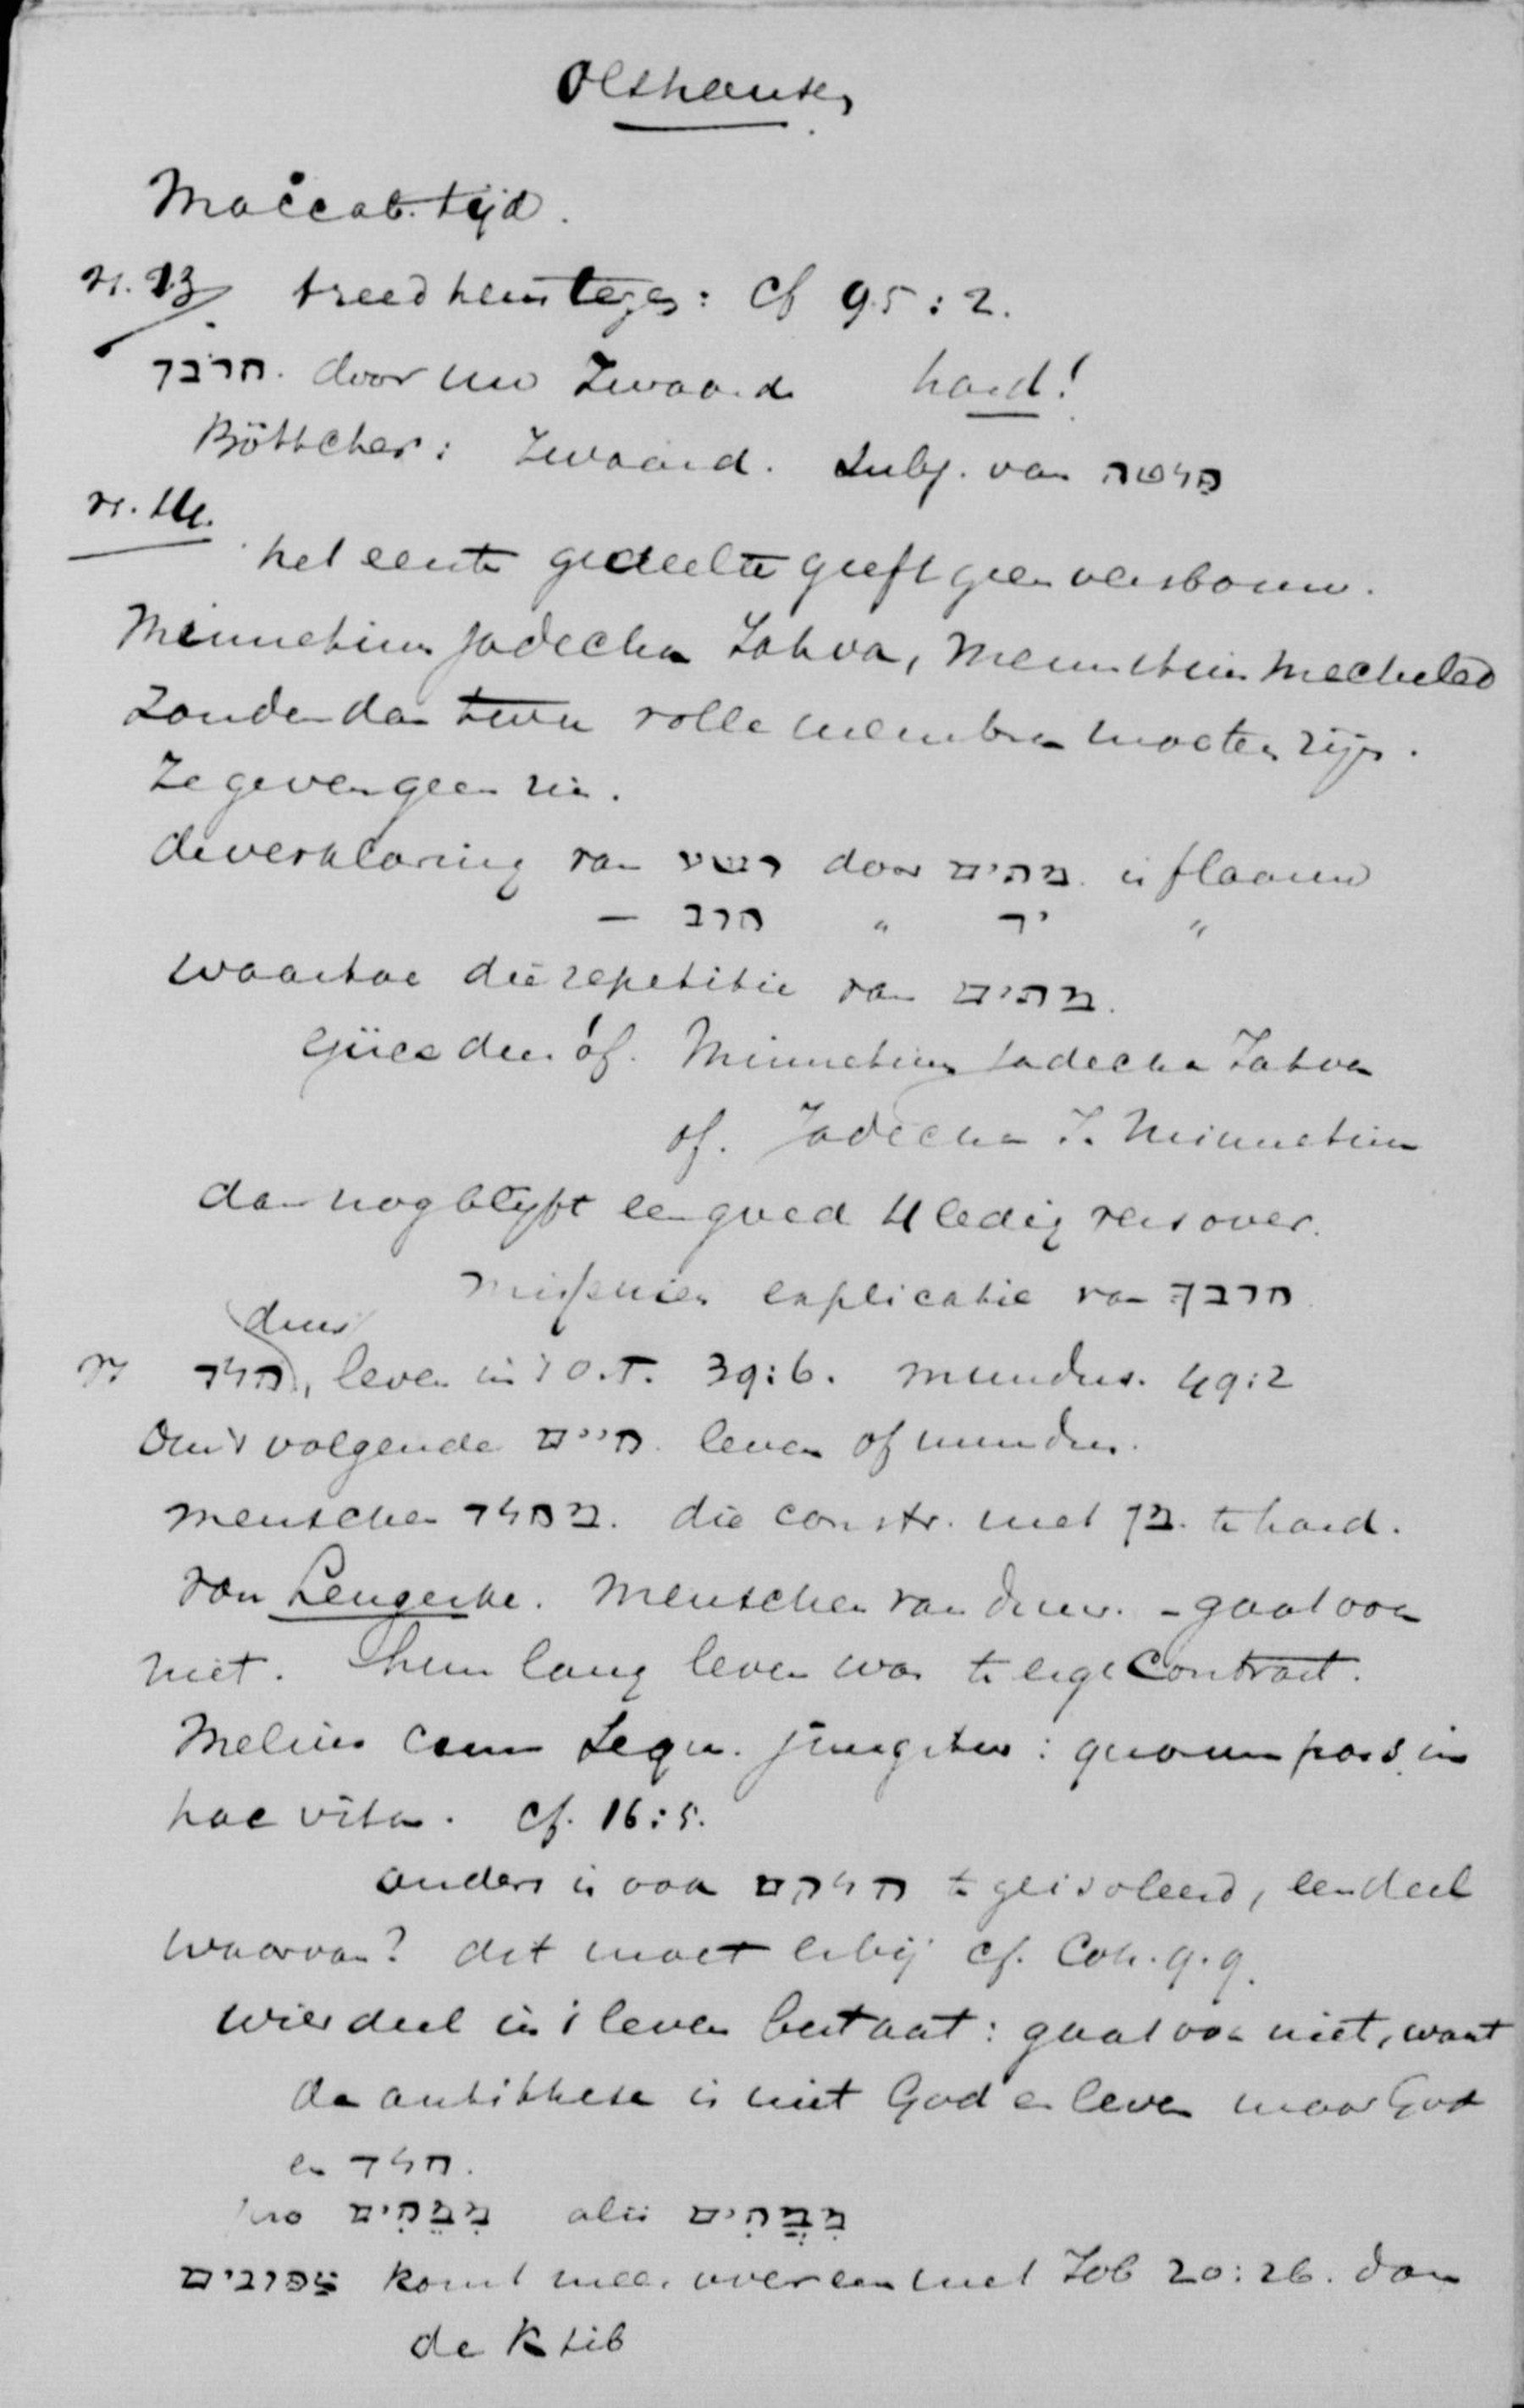 Olshausen
Maccab. tijd.
vs. 13 treed hem tegen: cf 95:2.
חרבך. door uw Zwaard hard!
Böttcher: Zwaard. Subj. van פלטה
vs. 14.
het eerste gedeelte geeft geen versbouw.
Mimmetim jadecha Jahva, Mimmetim mecheled
zonder dan twee volle membra moeten zijn.
Ze geven geen zin.
de verklaring van רשע door מתים is flaauw
— חרב " יד "
waartoe die repetitie van מתים.
of. Mimmetim jadecha Jahva
of. Jadecha J. Mimmetim
dan nog blijft een goed 4 ledig vers over.
misschien explicatie van חרבך
duur
vs חלד, leven in 't O.T. 39:6. mundus. 49:2
om 't volgende חיים. leven of mundus.
menschen מחלד. die constr. met מן. te hard.
von Lengerke. Menschen van duur. - gaat ook
niet. hun lang leven was te erge contrast.
Melius cum sequ. jungitur: quorum pars in
hac vita. cf. 16:5.
anders is ook חלקם te geisoleerd, een deel
waarvan? dit moet erbij cf. Coh. 9.9.
wier deel in 't leven bestaat: gaat ook niet, want
de antithese is niet God en leven maar God
en חלד.
pro מִמֵתִים alii מִמֲתִים
צפונים komt meer overeen met Job 20:26. dan
de Ktib